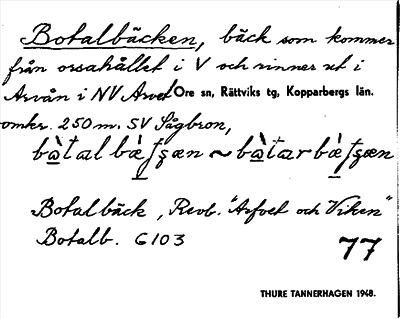 Botalbäcken, bäck som kommer
från orsahållet i V och rinner ut i
Arvån i NV Arvet Ore sn, Rättviks tg, Kopparbergs län.
omkr. 250 m. SV Sågbron,
bòtalbæ̀ʃʂæn ~ bòtarbæ̀ʃʂæn
Botalbäck, Revb. "Arfvet och Viken"
Botalb. G103
77
THURE TANNERHAGEN 1948.